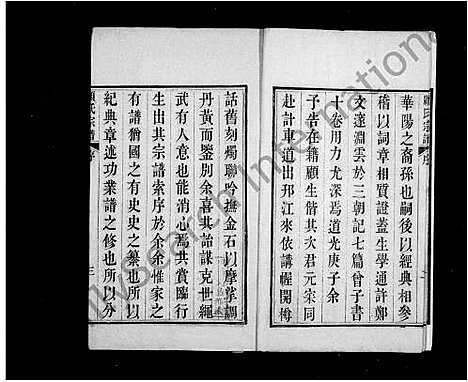 顧氏宗譜 序
華陽之裔孫也嗣後以經典相參
稽以詞章相質證蓋生學通許鄭
文達淵雲於三朝記七篇曾子書
十卷用力尤深焉道光庚子余
子告在籍顧生偕其次君元宋同
赴計車道出邗江來依講幄開樽
話舊刻燭聯吟撫金石以摩挲調
丹黃而鑒別余喜其詒謀克世繩
武有人意也能消為共賞臨行
生出其宗譜索序於余余惟家之
有譜猶國之有史史之纂也所以
紀典章述功業譜之修也所以分
顧氏宗譜 序 三
ilySearch International